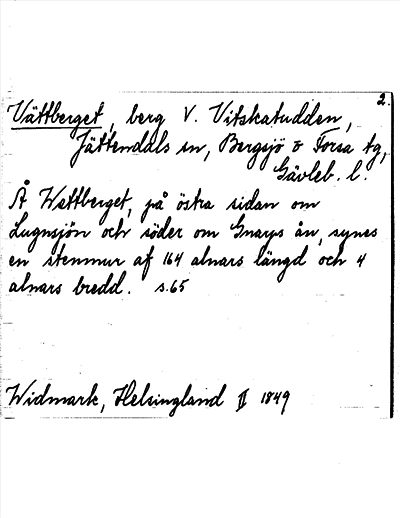 2.
Vättberget, berg V. Vitskatudden,
Jättendals sn, Bergsjö & Forsa tg,
Gävleb. l.
Å Wettberget, på östra sidan om
Lugnsjön och söder om Gnarps ån, synes
en stenmur af 164 alnars längd och 4
alnars bredd. s. 65
Widmark, Helsingland II 1849